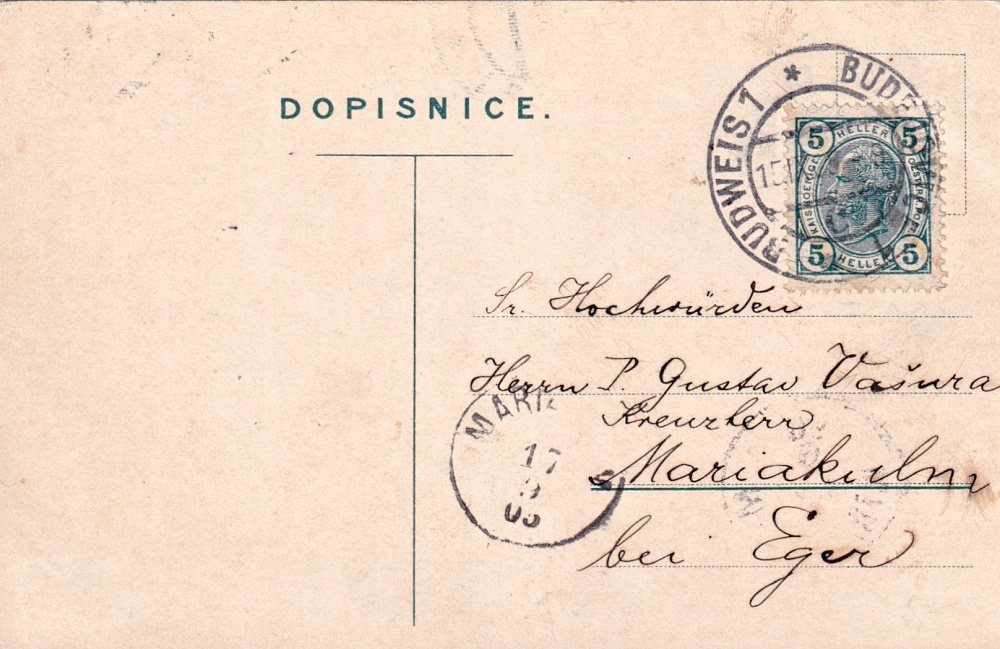 DOPISNICE.
BUDWEIS 1 * BUD
15
5 HELLER 5
KAIS KOENIGL
OESTERR POST
5 HELLER 5
Sr. Hochwürden
Herrn P. Gustav Vašura
Kreuzherr
Mariakulm
bei Eger
MARI
17
9
05